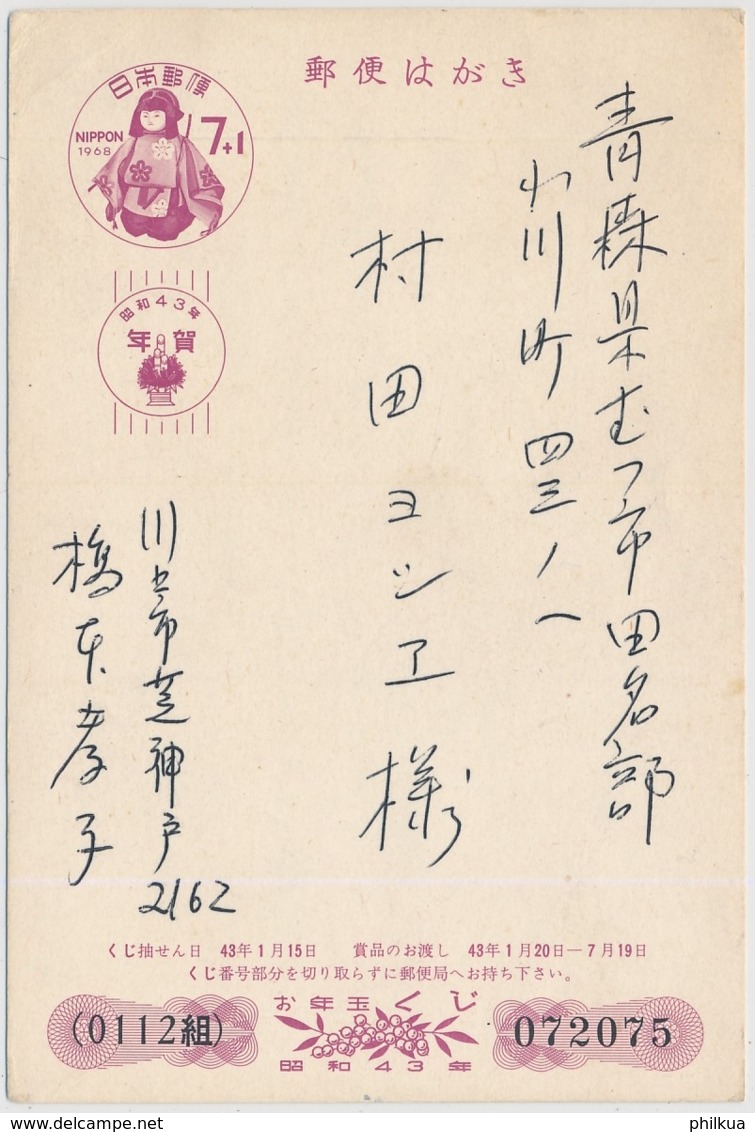 郵便はがき
日本郵便
NIPPON
1968
7+1
昭和43年
年賀
青森県むつ市田名部
小川町四三ノ八
村田ヨシヱ様
川口市芝神戸
2162
橋本孝子
くじ抽せん日 43年1月15日 賞品のお渡し 43年1月20日—7月19日
くじ番号部分を切り取らずに郵便局へお持ち下さい。
お年玉くじ
(0112組)
072075
昭和43年
philkua
philkua